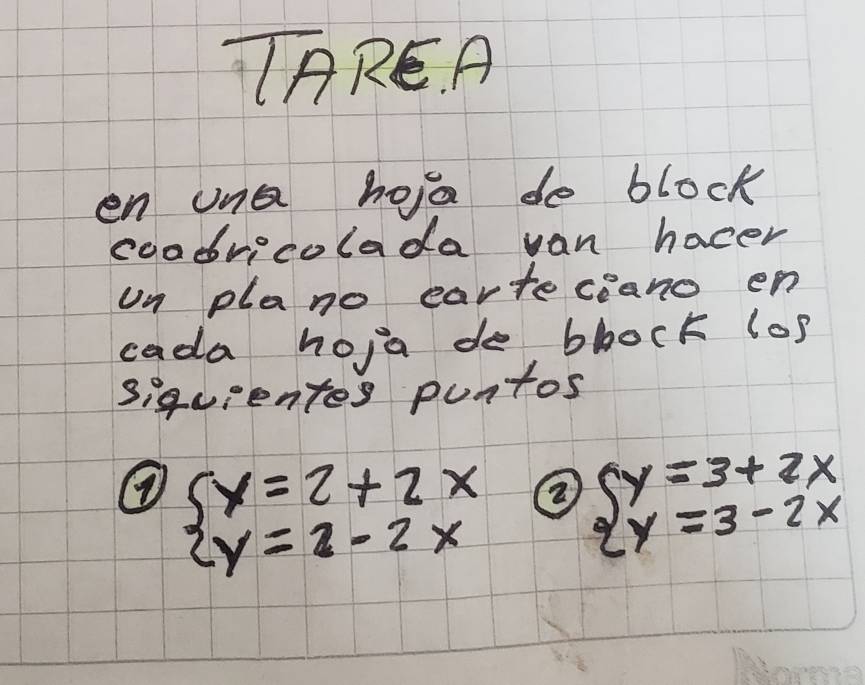 TAREA
en una hoja de block
coadricolada van hacer
un plano carteciano en
cada hoja de bbock los
siguientes puntos
① { y = 2 + 2x ② { y = 3 + 2x
y = 2 - 2x y = 3 - 2x
Norma